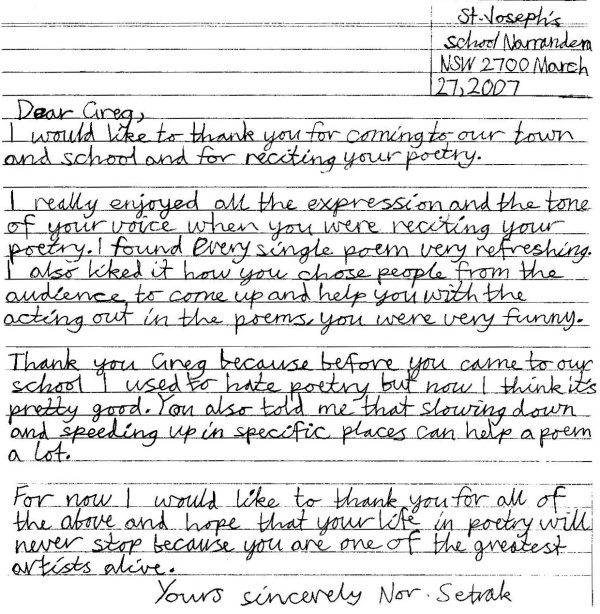 St. Joseph's
school Narrandera
NSW 2700 March
27, 2007
Dear Greg,
I would like to thank you for coming to our town
and school and for reciting your poetry.
I really enjoyed all the expression and the tone
of your voice when you were reciting your
poetry. I found every single poem very refreshing.
I also liked it how you chose people from the
audience, to come up and help you with the
acting out in the poems, you were very funny.
Thank you Greg because before you came to our
school I used to hate poetry but now I think it's
pretty good. You also told me that slowing down
and speeding up in specific places can help a poem
a lot.
For now I would like to thank you for all of
the above and hope that your life in poetry will
never stop because you are one of the greatest
artists alive.
Yours sincerely Nor. Setrak